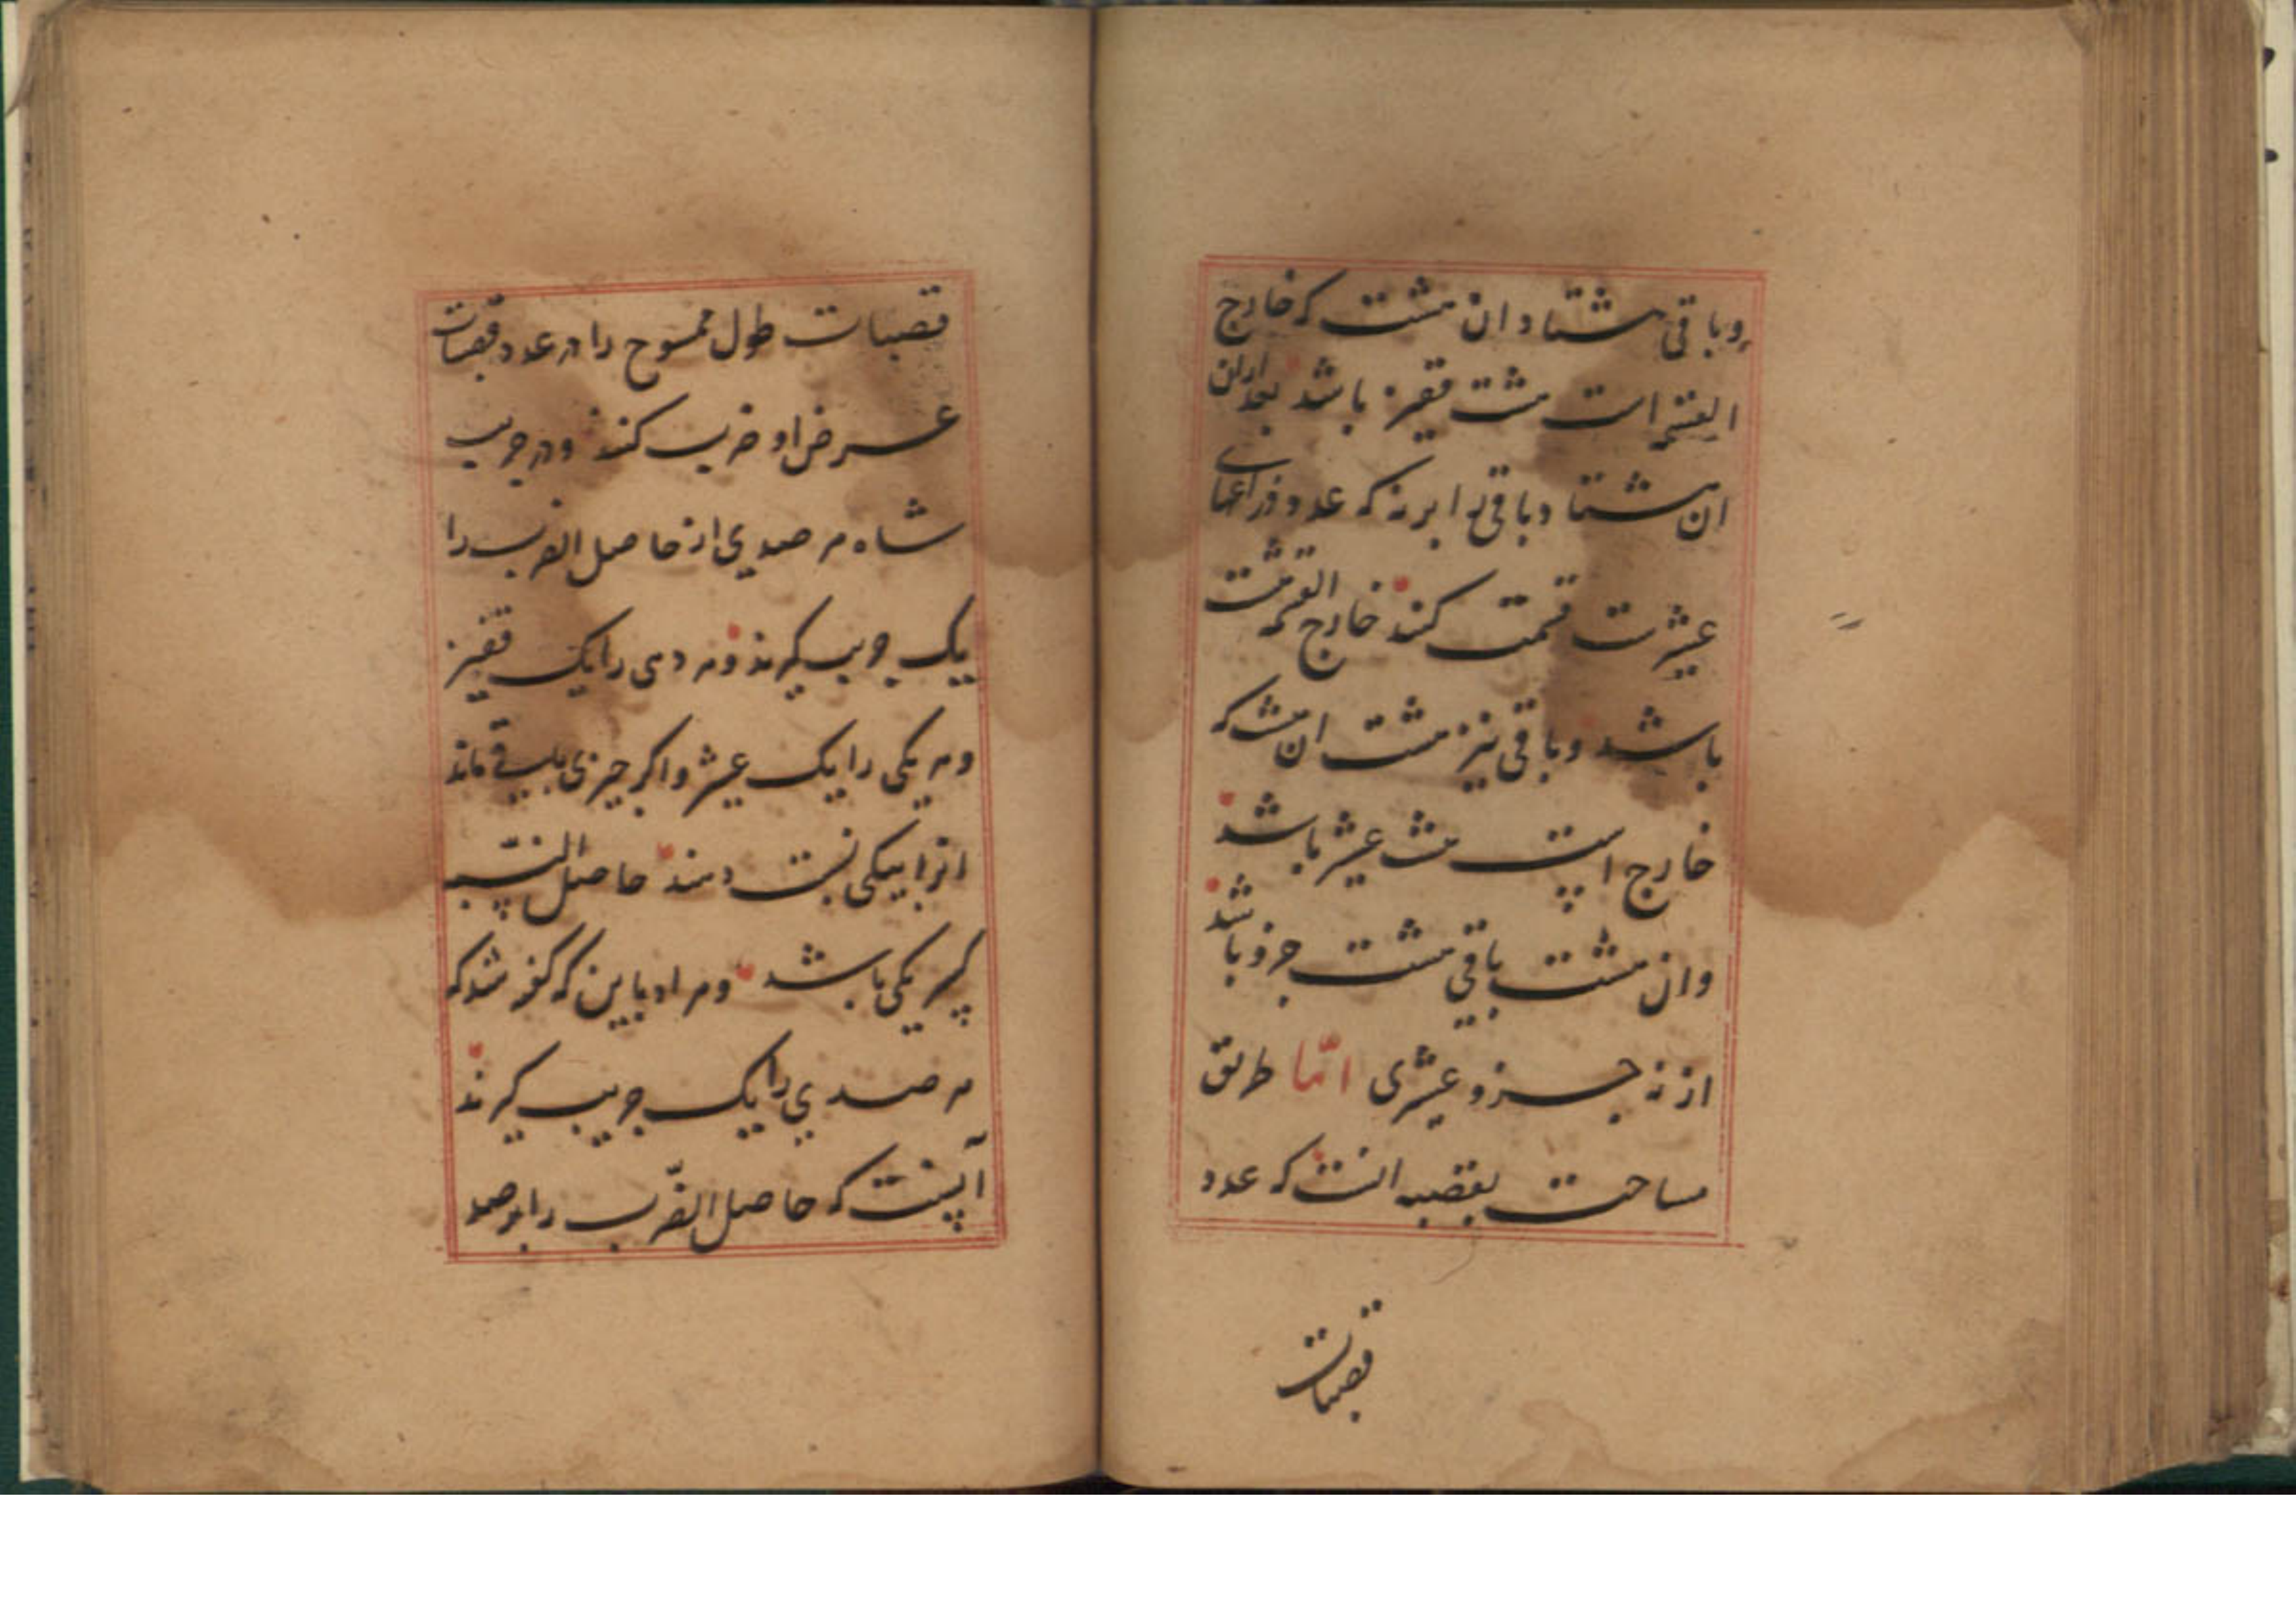 وباقی هشتاد ان هشت که خارج
القسمة است هشت قفیز باشد بعد ازان
ان هشتاد باقی را بر نه که عدد ذراعهای
عشیرست قسمت کنند خارج القسمة هشت
باشد وباقی نیز هشت ان هشت که
خارج است هشت عشیر باشد
وان هشت باقی هشت جزو باشد
از نه جزو عشیری اما طریق
مساحت بقصبه انست که عدد
قصبات
قصبات طول ممسوح را در عدد قصبات
عرض او ضرب کنند ودر جریب
شاه هر صدی از حاصل الضرب را
یک جریب کیرند وهر دهی را یک قفیز
وهر یکی را یک عشیر واکر چیزی باقی ماند
انرا بیکی نسبت دهند حاصل النسبه
کسر یکی باشد ومراد باین که گفته شد که
هر صدی را یک جریب کیرند
آنست که حاصل الضرب را بر صد